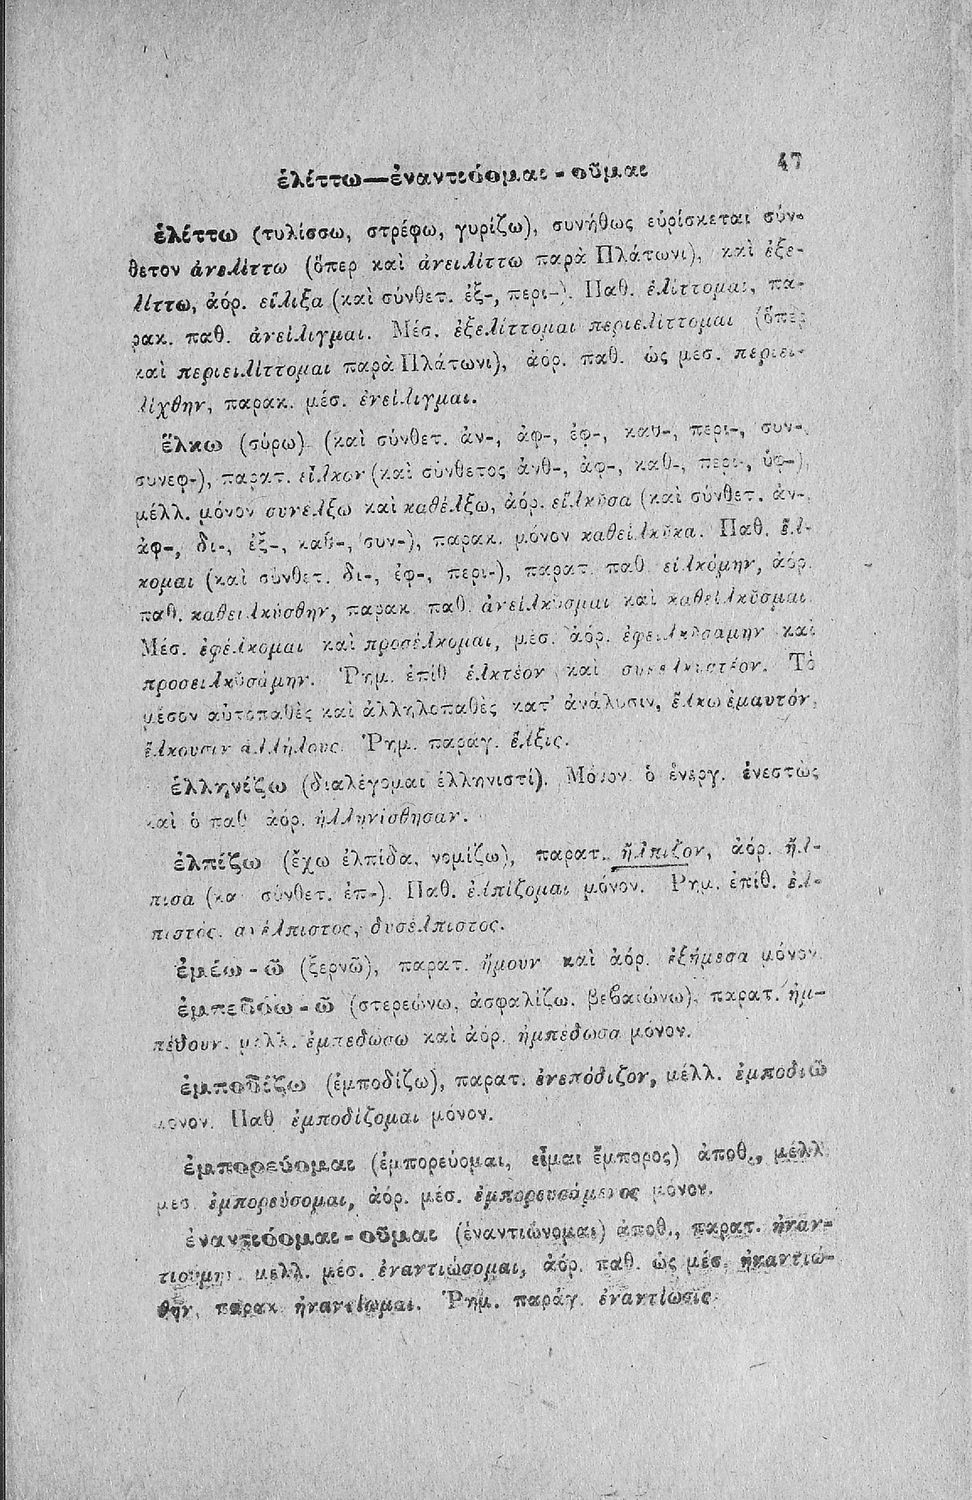 ἑλίττω—ἐναντιόομαι - οῦμαι 47
ἑλίττω (τυλίσσω, στρέφω, γυρίζω), συνήθως εὑρίσκεται σύν-
θετον ἀνελίττω (ὅπερ καὶ ἀνειλίττω παρὰ Πλάτωνι), καὶ ἐξε-
λίττω, ἀόρ. εἵλιξα (καὶ σύνθετ. ἐξ-, περι-). Παθ. ἑλίττομαι, πα-
ρακ. παθ. ἀνείλιγμαι. Μέσ. ἐξελίττομαι περιελίττομαι (ὅπερ
καὶ περιειλίττομαι παρὰ Πλάτωνι), ἀόρ. παθ. ὡς μέσ. περιει-
λίχθην, παρακ. μέσ. ἐνείλιγμαι.
ἕλκω (σύρω) (καὶ σύνθετ. ἀν-, ἀφ-, ἐφ-, καθ-, περι-, συν-,
συνεφ-), παρατ. εἷλκον (καὶ σύνθετος ἀνθ-, ἀφ-, καθ-, περι-, ὑφ-),
μέλλ. μόνον συνέλξω καὶ καθέλξω, ἀόρ. εἵλκυσα (καὶ σύνθετ. ἀν-,
ἀφ-, δι-, ἐξ-, καθ-, συν-), παρακ. μόνον καθείλκυκα. Παθ. ἕλ-
κομαι (καὶ σύνθετ. δι-, ἐφ-, περι-), παρατ. παθ. εἱλκόμην, ἀόρ.
παθ. καθειλκύσθην, παρακ. παθ. ἀνείλκυσμαι καὶ καθείλκυσμαι.
Μέσ. ἐφέλκομαι καὶ προσέλκομαι, μέσ. ἀόρ. ἐφειλκυσάμην καὶ
προσειλκυσάμην. Ῥημ. ἐπίθ. ἑλκτέον καὶ συνελκυστέον. Τὸ
μέσον αὐτοπαθὲς καὶ ἀλληλοπαθὲς κατ' ἀνάλυσιν, ἕλκω ἐμαυτόν,
ἕλκουσιν ἀλλήλους. Ῥημ. παράγ. ἕλξις.
ἑλληνίζω (διαλέγομαι ἑλληνιστί). Μόνον ὁ ἐνεργ. ἐνεστὼς
καὶ ὁ παθ. ἀόρ. ἡλληνίσθησαν.
ἐλπίζω (ἔχω ἐλπίδα, νομίζω), παρατ. ἤλπιζον, ἀόρ. ἤλ-
πισα (καὶ σύνθετ. ἐπ-). Παθ. ἐλπίζομαι μόνον. Ρημ. ἐπίθ. ἐλ-
πιστός, ἀνέλπιστος, δυσέλπιστος.
ἐμέω - ῶ (ξερνῶ), παρατ. ἤμουν καὶ ἀόρ. ἐξήμεσα μόνον.
ἐμπεδόω - ῶ (στερεώνω, ἀσφαλίζω, βεβαιώνω), παρατ. ἠμ-
πέδουν, μέλλ. ἐμπεδώσω καὶ ἀόρ. ἠμπέδωσα μόνον.
ἐμποδίζω (ἐμποδίζω), παρατ. ἐνεπόδιζον, μέλλ. ἐμποδιῶ
μόνον. Παθ. ἐμποδίζομαι μόνον.
ἐμπορεύομαι (ἐμπορεύομαι, εἶμαι ἔμπορος) ἀποθ., μέλλ.
μεσ. ἐμπορεύσομαι, ἀόρ. μέσ. ἐμπορευσάμενος μόνον.
ἐναντιόομαι - οῦμαι (ἐναντιώνομαι) ἀποθ., παρατ. ἠναν-
τιούμην, μελλ. μέσ. ἐναντιώσομαι, ἀόρ. παθ. ὡς μέσ. ἠναντιώ-
θην, παρακ. ἠναντίωμαι. Ῥημ. παράγ. ἐναντίωσις